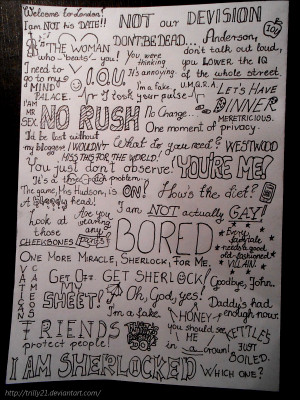 Welcome to London!
I am NOT his DATE!!
NOT our DEVISION
101
"THE WOMAN
who "beats" you!
DON'T BE DEAD...
Anderson,
don't talk out loud,
you LOWER the IQ
of the whole street.
You were
thinking
It's annoying.
I need to
go to my
MIND
PALACE.
I.O.U.
I'm a fake.
I took your pulse
U.M.Q.R.A.
LET'S HAVE
DINNER
I'AM
MR
SEX
NO RUSH
No Change...
METRICIOUS.
One moment of privacy.
I'd be lost without
my blogger!
I WOULDN'T
MISS THIS FOR THE WORLD!
What do you need?
WESTWOOD
You just don't observe!
YOU'RE ME!
It's a three problem.
The game, Mrs Hudson, is
ON!
How's the diet?
A Bloody head!
Look at
those
CHEEKBONES
Are you
wearing
any
PANTS?
I am NOT actually GAY!
BORED
Every
fairytale
needs a good
old-fashioned
VILLAIN
ONE MORE MIRACLE, SHERLOCK, FOR ME.
VATICAN
CAMEOS
GET OFF
MY
SHEET!
GET SHERLOCK!
Goodbye, John.
Oh, God, yes!
Daddy's had
enough now.
I'm a fake
HONEY
you should see
ME
in a crown
KETTLE'S
JUST
BOILED.
FRIENDS
protect people!
I AM SHERLOCKED
WHICH ONE?
http://trilly21.deviantart.com/